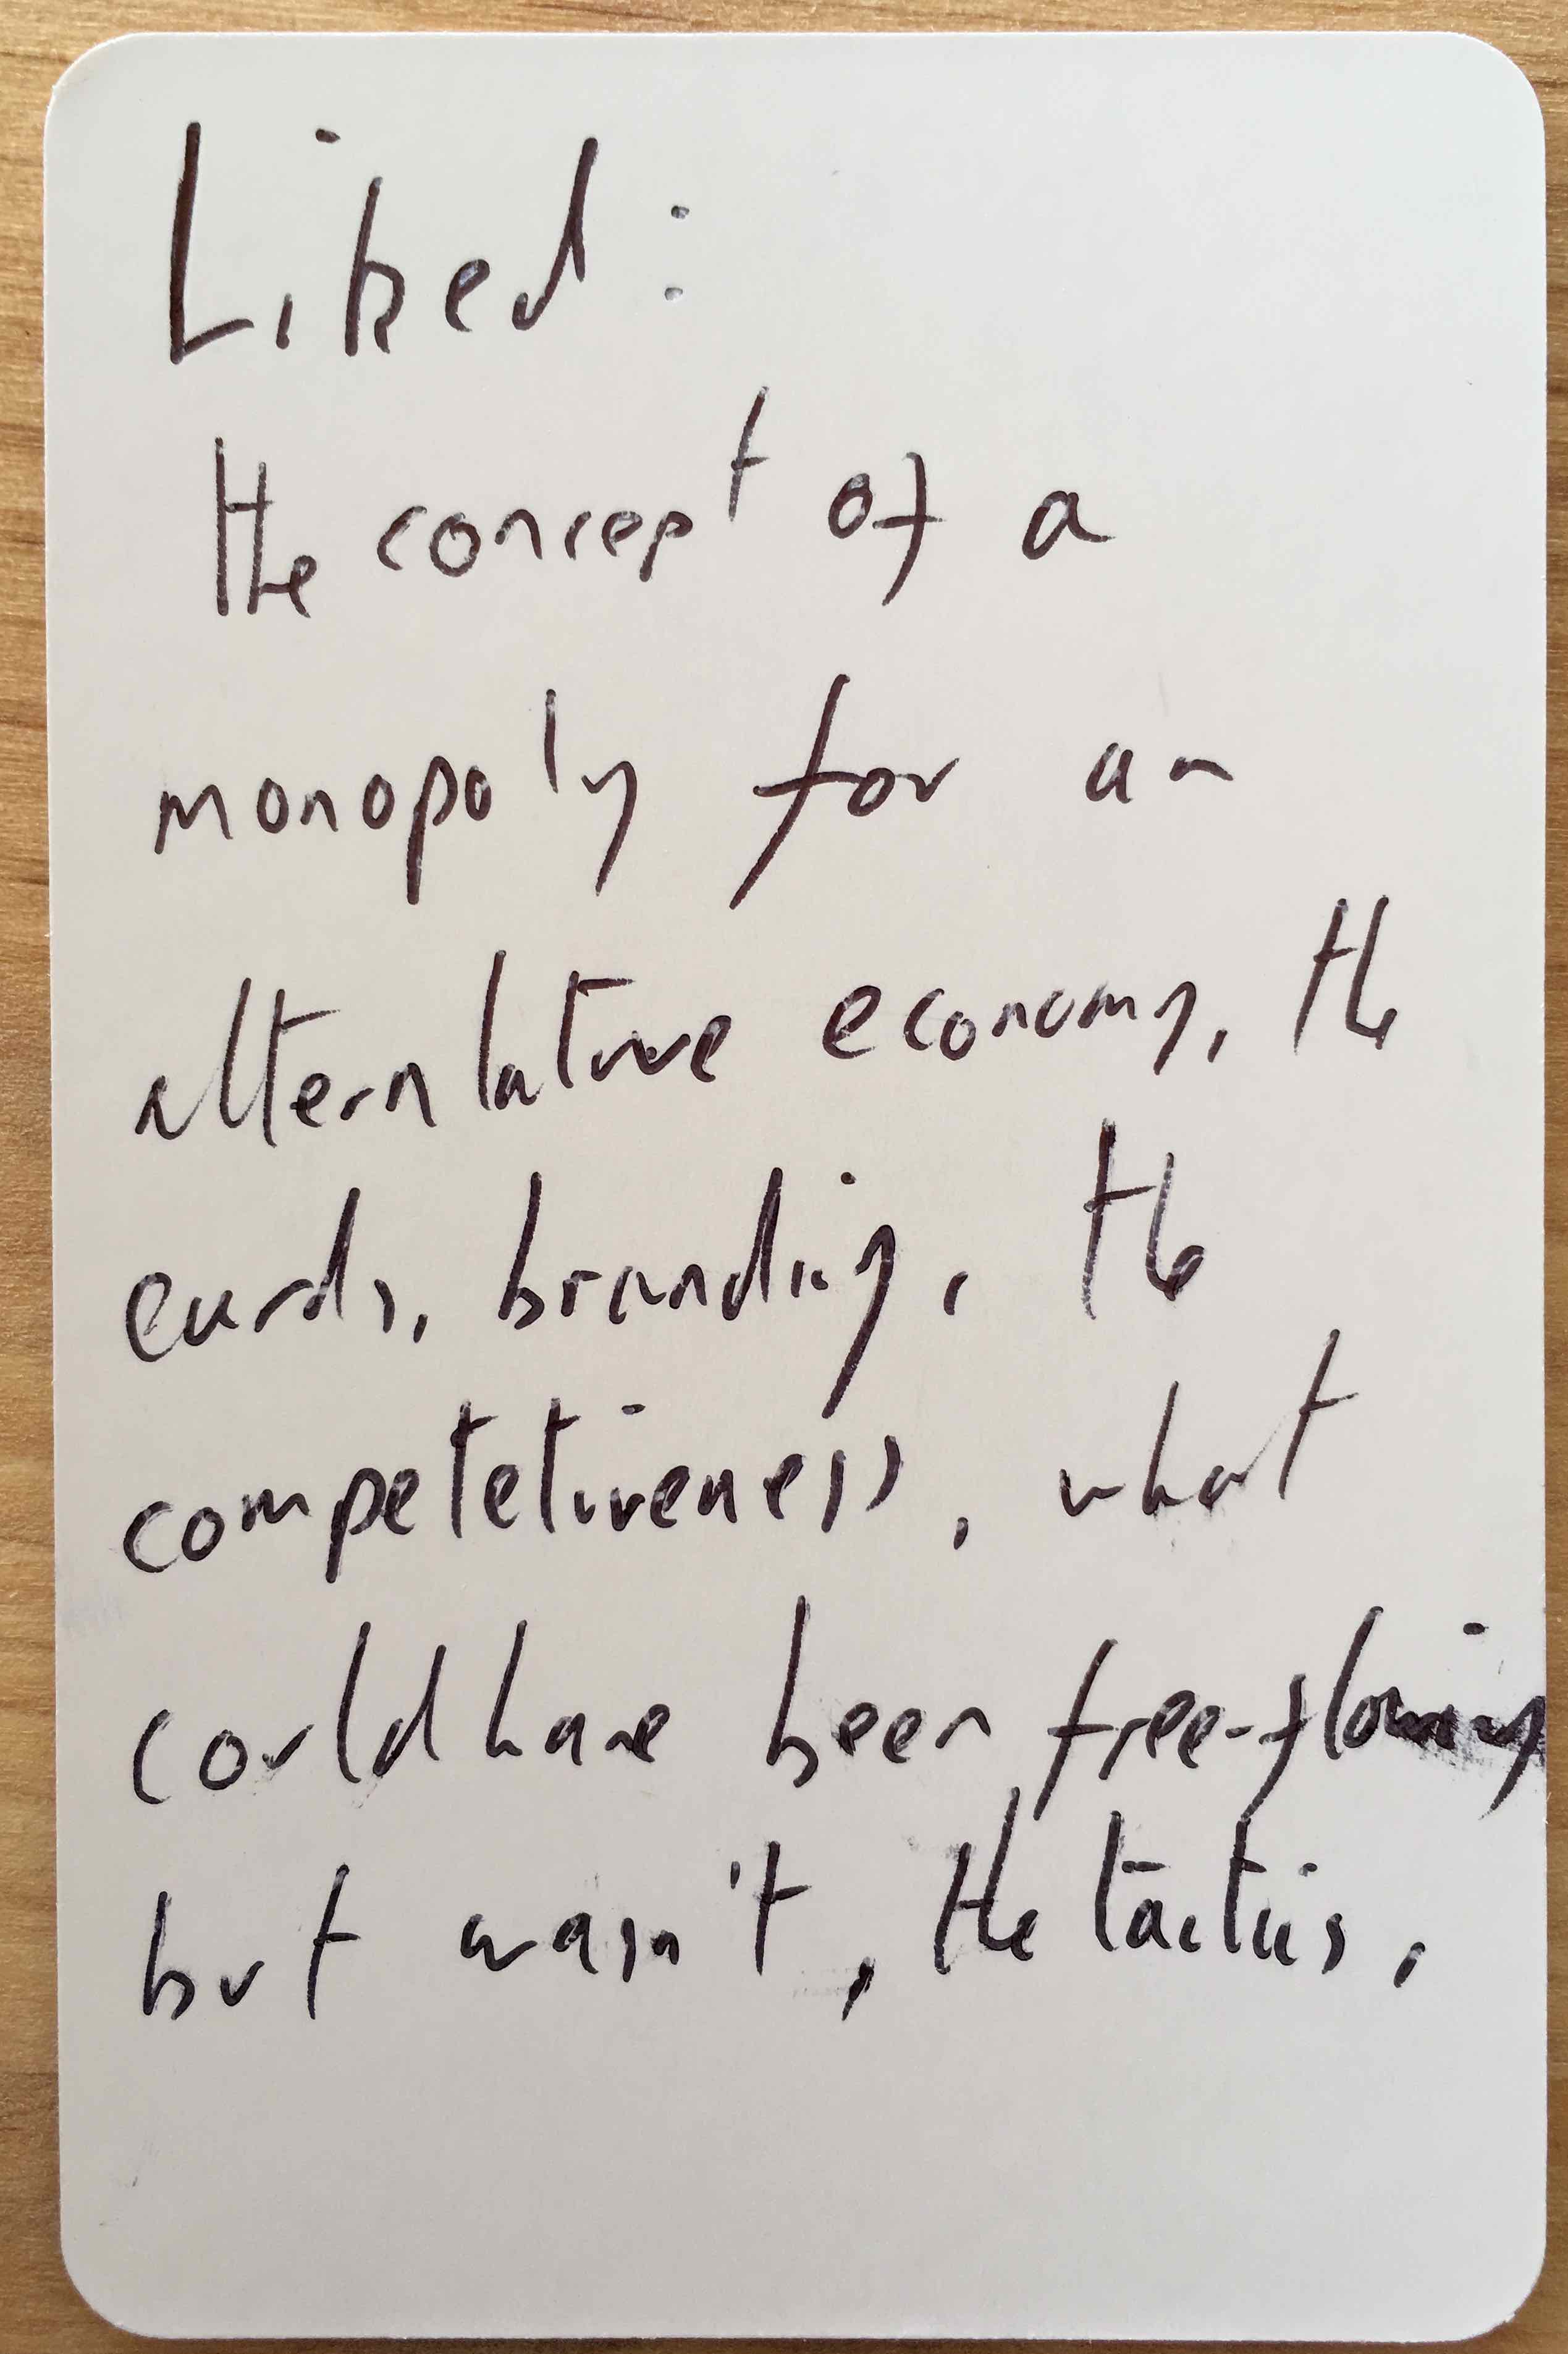 Liked:
the concept of a
monopoly for an
alternlative economy, the
cards, branding, the
competetiveness, what
could have been free-flowing
but wasn't, the tactics,